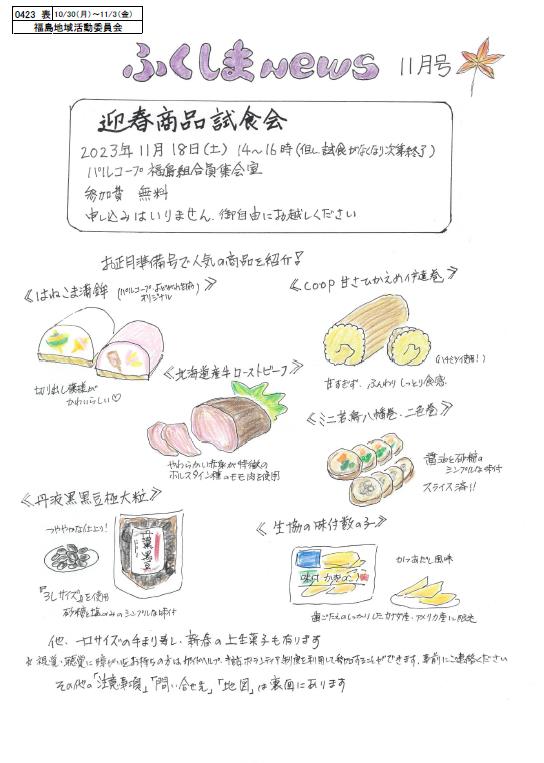 0423 表 10/30(月)～11/3(金)
福島地域活動委員会
ふくしまNews 11月号
迎春商品試食会
2023年11月18日(土) 14～16時(但し、試食がなくなり次第終了)
パルコープ福島組合員集会室
参加費 無料
申し込みはいりません、御自由にお越しください
お正月準備号で人気の商品を紹介!
《はねこま蒲鉾
オリジナル
切り出し模様が
かわいらしい♡
《COOP 甘さひかえめ伊達巻》
(ハチミツ使用!)
甘すぎず、ふんわりしっとり食感
《北海道産牛ローストビーフ》
やわらかい赤身が特徴の
ホルスタイン種のモモ肉を使用
《ミニ若鶏八幡巻・二色巻》
醤油と砂糖の
シンプルな味付
スライス済!!
《丹波黒黒豆極大粒》
つややかな仕上り!
丹波黒
黒豆
『3Lサイズ』を使用
砂糖と塩のみのシンプルな味付
《生協の味付数の子》
味付 かずのこ
かつおだし風味
歯ごたえのしっかりしたカナダ産・アメリカ産に限定
他、一口サイズの手まり寿し、新春の上生菓子も有ります
※視覚・聴覚に障がいをお持ちの方はガイドヘルプ、手話ボランティア制度を利用して参加することができます。事前にご連絡ください
その他の「注意事項」「問い合せ先」「地図」は裏面にあります